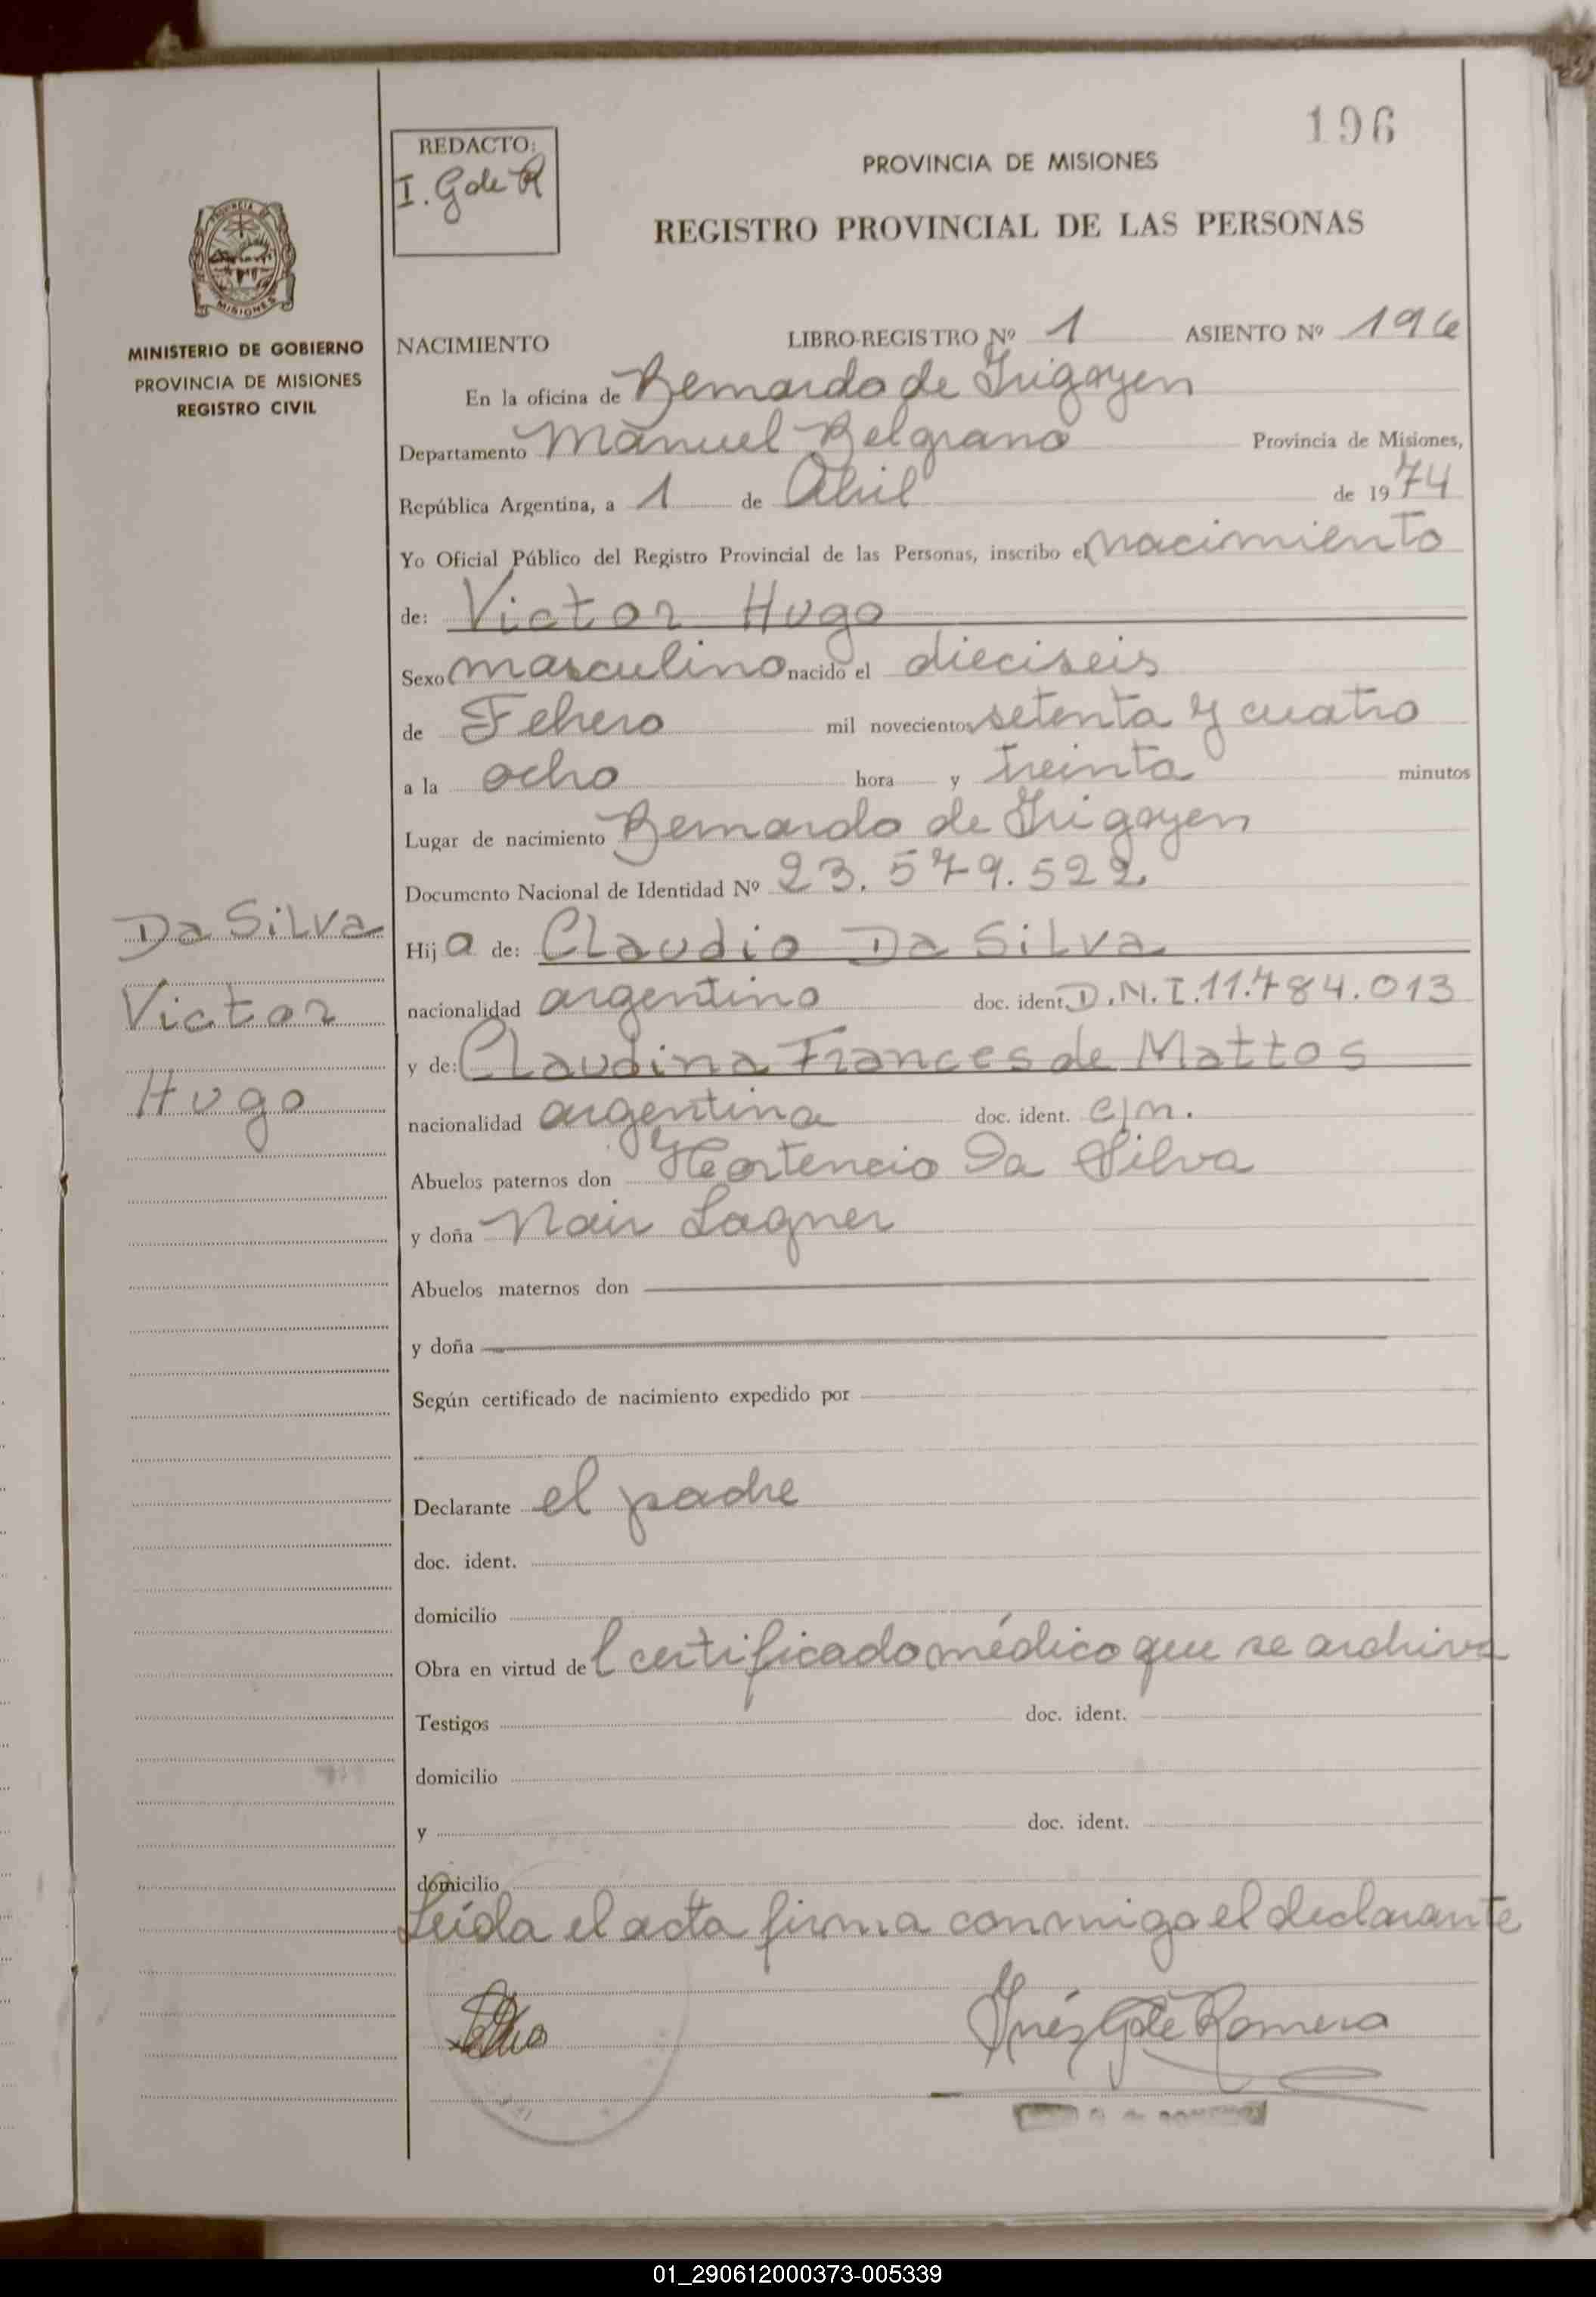 196
REDACTO:
I. G de R
PROVINCIA DE MISIONES
REGISTRO PROVINCIAL DE LAS PERSONAS
PROVINCIA DE
MISIONES
MINISTERIO DE GOBIERNO
PROVINCIA DE MISIONES
REGISTRO CIVIL
NACIMIENTO LIBRO-REGISTRO Nº 1 ASIENTO Nº 196
En la oficina de Bernardo de Irigoyen
Departamento Manuel Belgrano Provincia de Misiones,
República Argentina, a 1 de Abril de 1974
Yo Oficial Público del Registro Provincial de las Personas, inscribo el nacimiento
de: Victor Hugo
Sexo masculino nacido el dieciseis
de Febrero mil novecientos setenta y cuatro
a la ocho hora y treinta minutos
Lugar de nacimiento Bernardo de Irigoyen
Documento Nacional de Identidad Nº 23.579.522
Da Silva
Victor
Hugo
Hij o de: Claudio Da Silva
nacionalidad argentino doc. ident. D.N.I. 11.784.013
y de: Claudina Frances de Mattos
nacionalidad argentina doc. ident. c/n.
Abuelos paternos don Hortencio Da Silva
y doña Nair Lagner
Abuelos maternos don
y doña
Según certificado de nacimiento expedido por
Declarante el padre
doc. ident.
domicilio
Obra en virtud del certificado médico que se archiva
Testigos doc. ident.
domicilio
y doc. ident.
domicilio
Leída el acta firma conmigo el declarante
Inés G de Romero
01_290612000373-005339